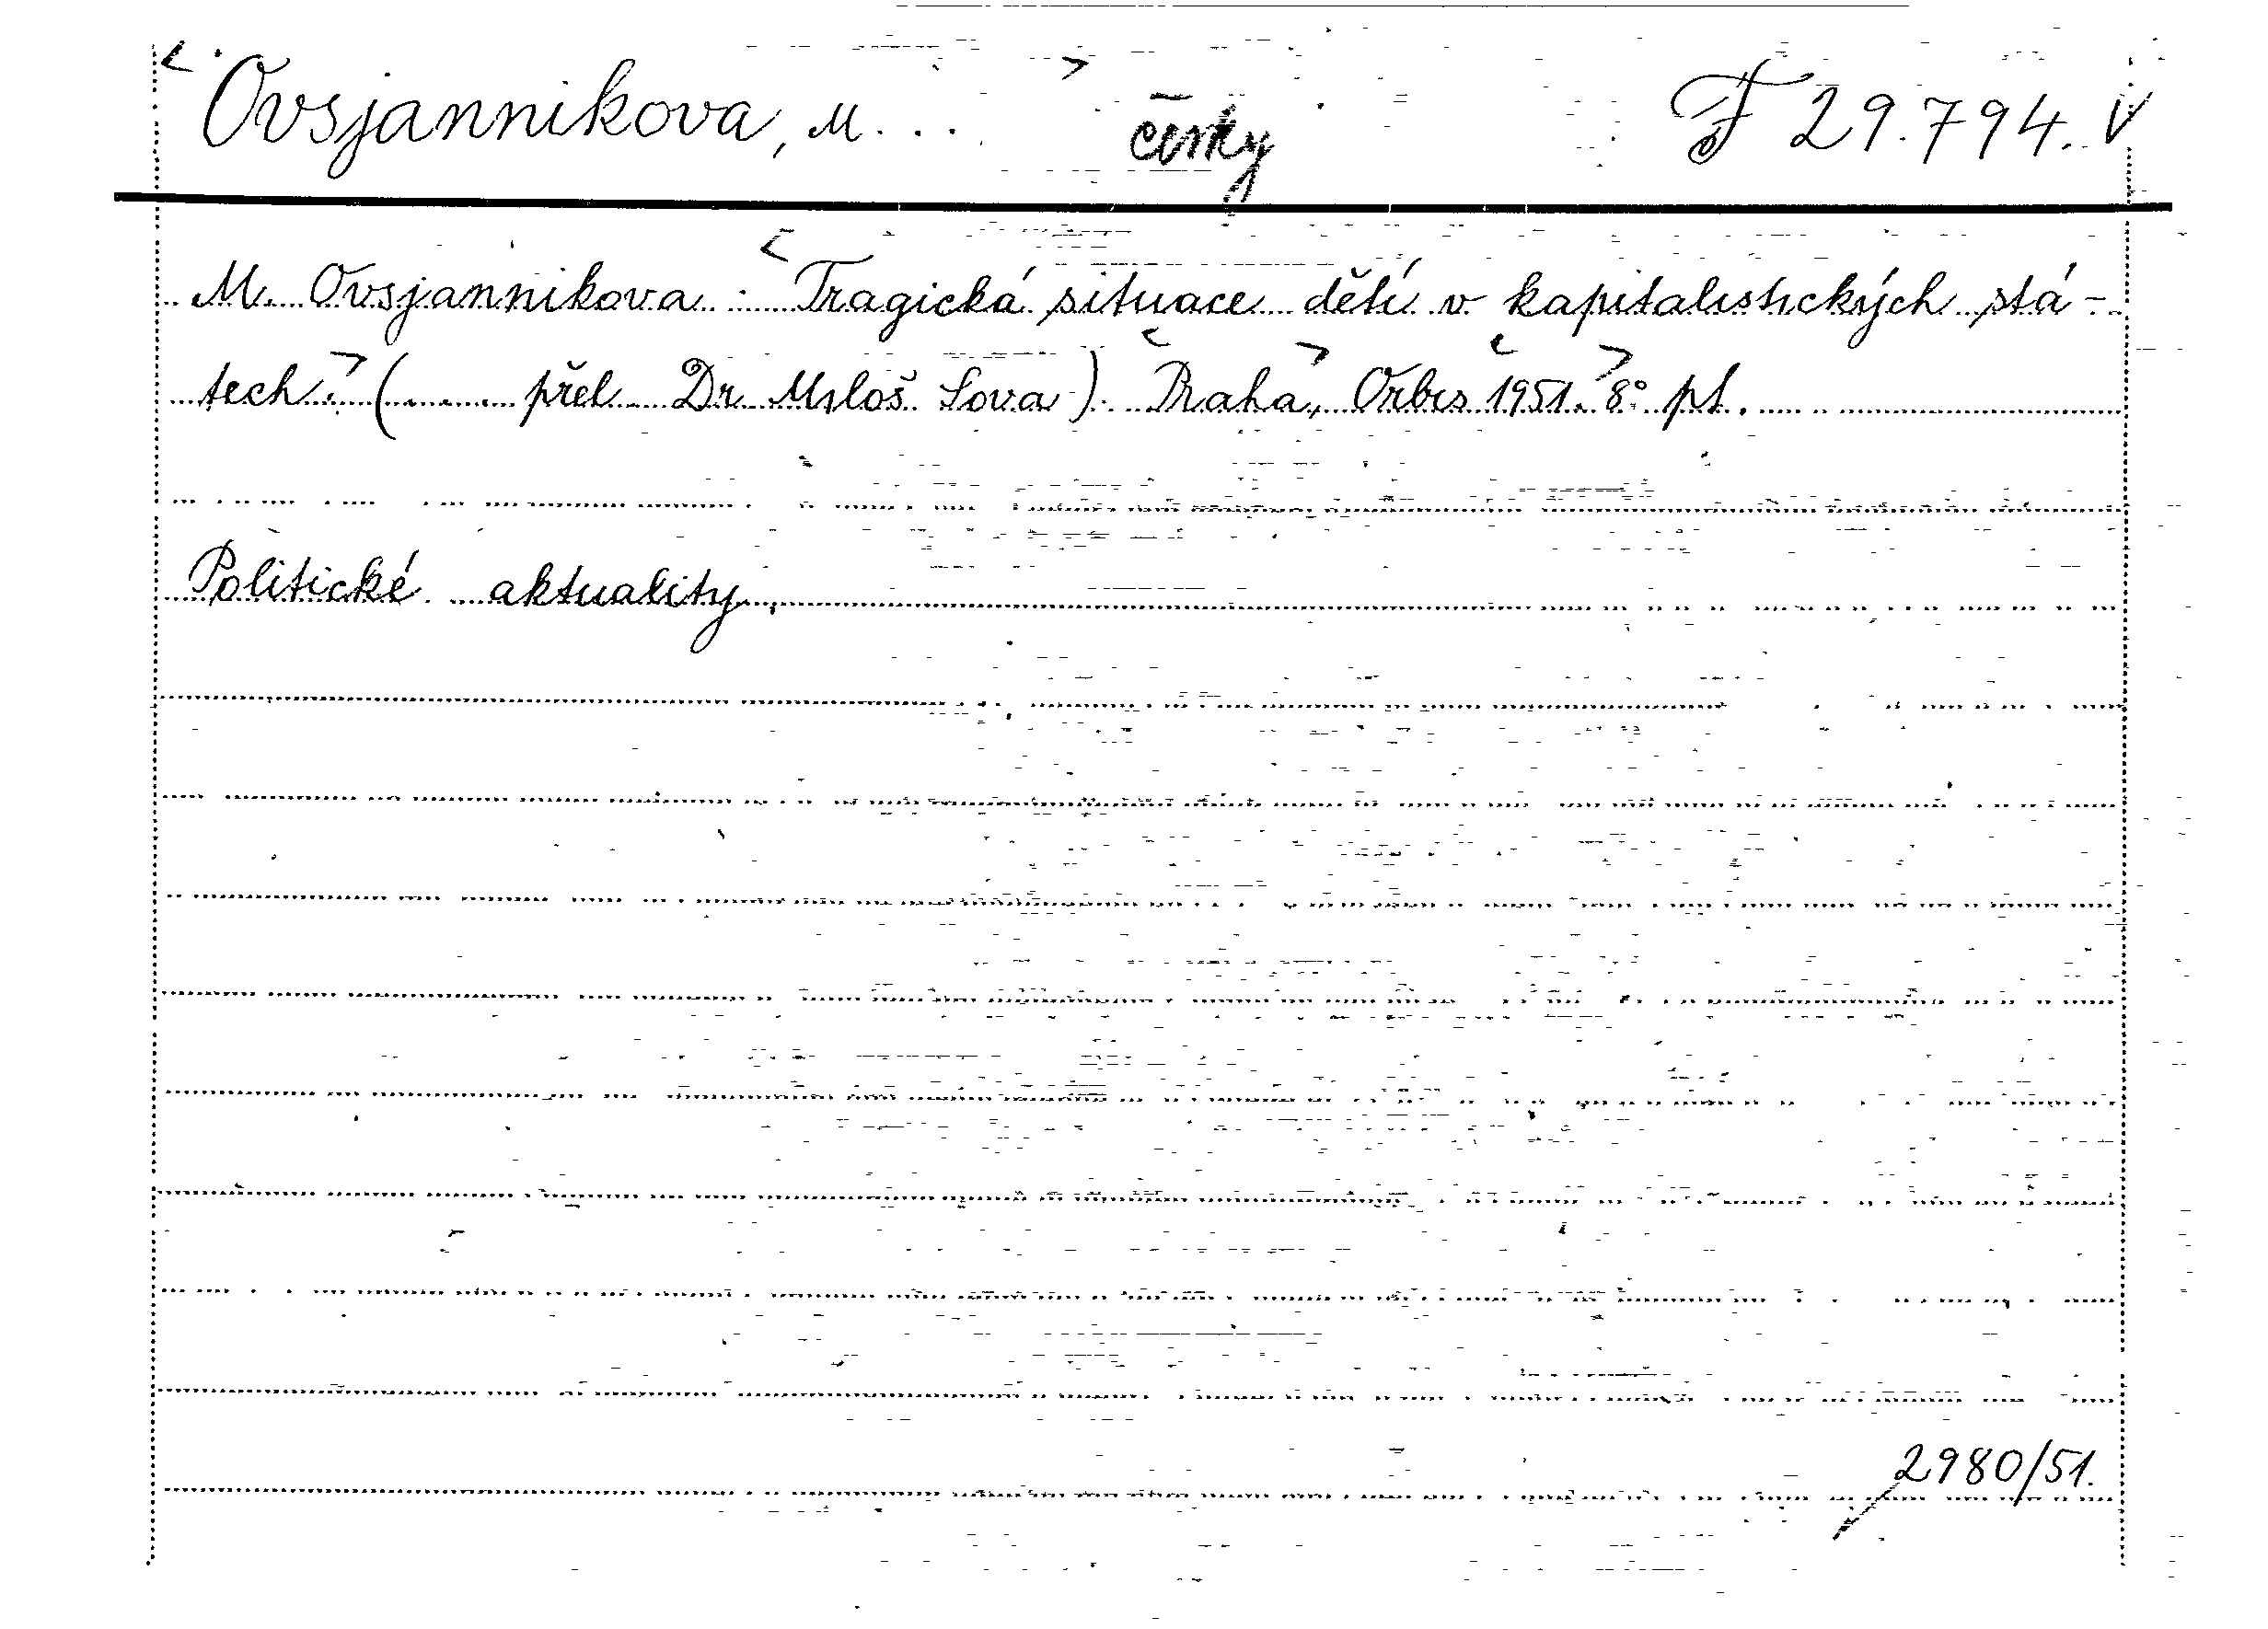 Ovsjannikova, M... česky F 29.794. V
M. Ovsjannikova: Tragická situace dětí v kapitalistických stá-
tech. (.... přel. Dr. Miloš Sova). Praha, Orbis 1951. 8° pt.
Politické aktuality.
2980/51.